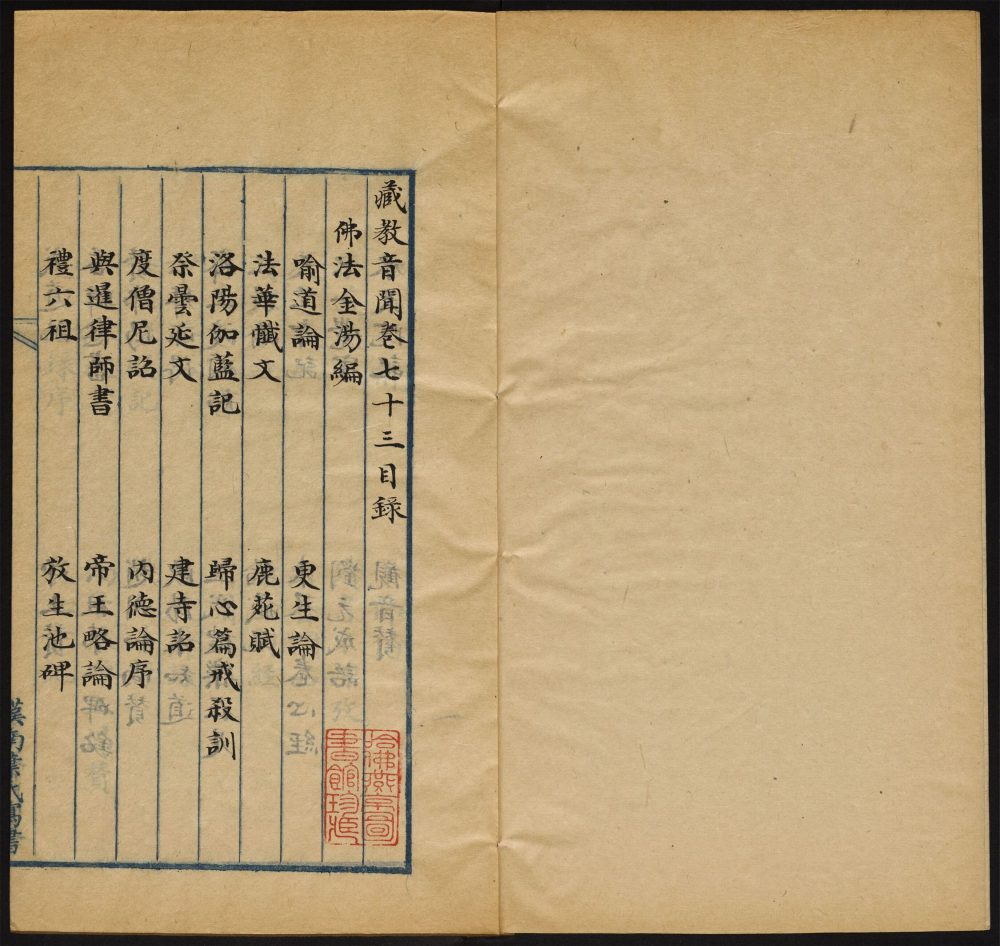 藏教音聞卷七十三目錄
佛法金湯編
喻道論 更生論
法華懺文 鹿苑賦
洛陽伽藍記 歸心篇戒殺訓
祭曇延文 建寺詔
度僧尼詔 內德論序
與暹律師書 帝王略論
禮六祖 放生池碑
漢葉氏寫書
哈佛燕京圖書館珍藏